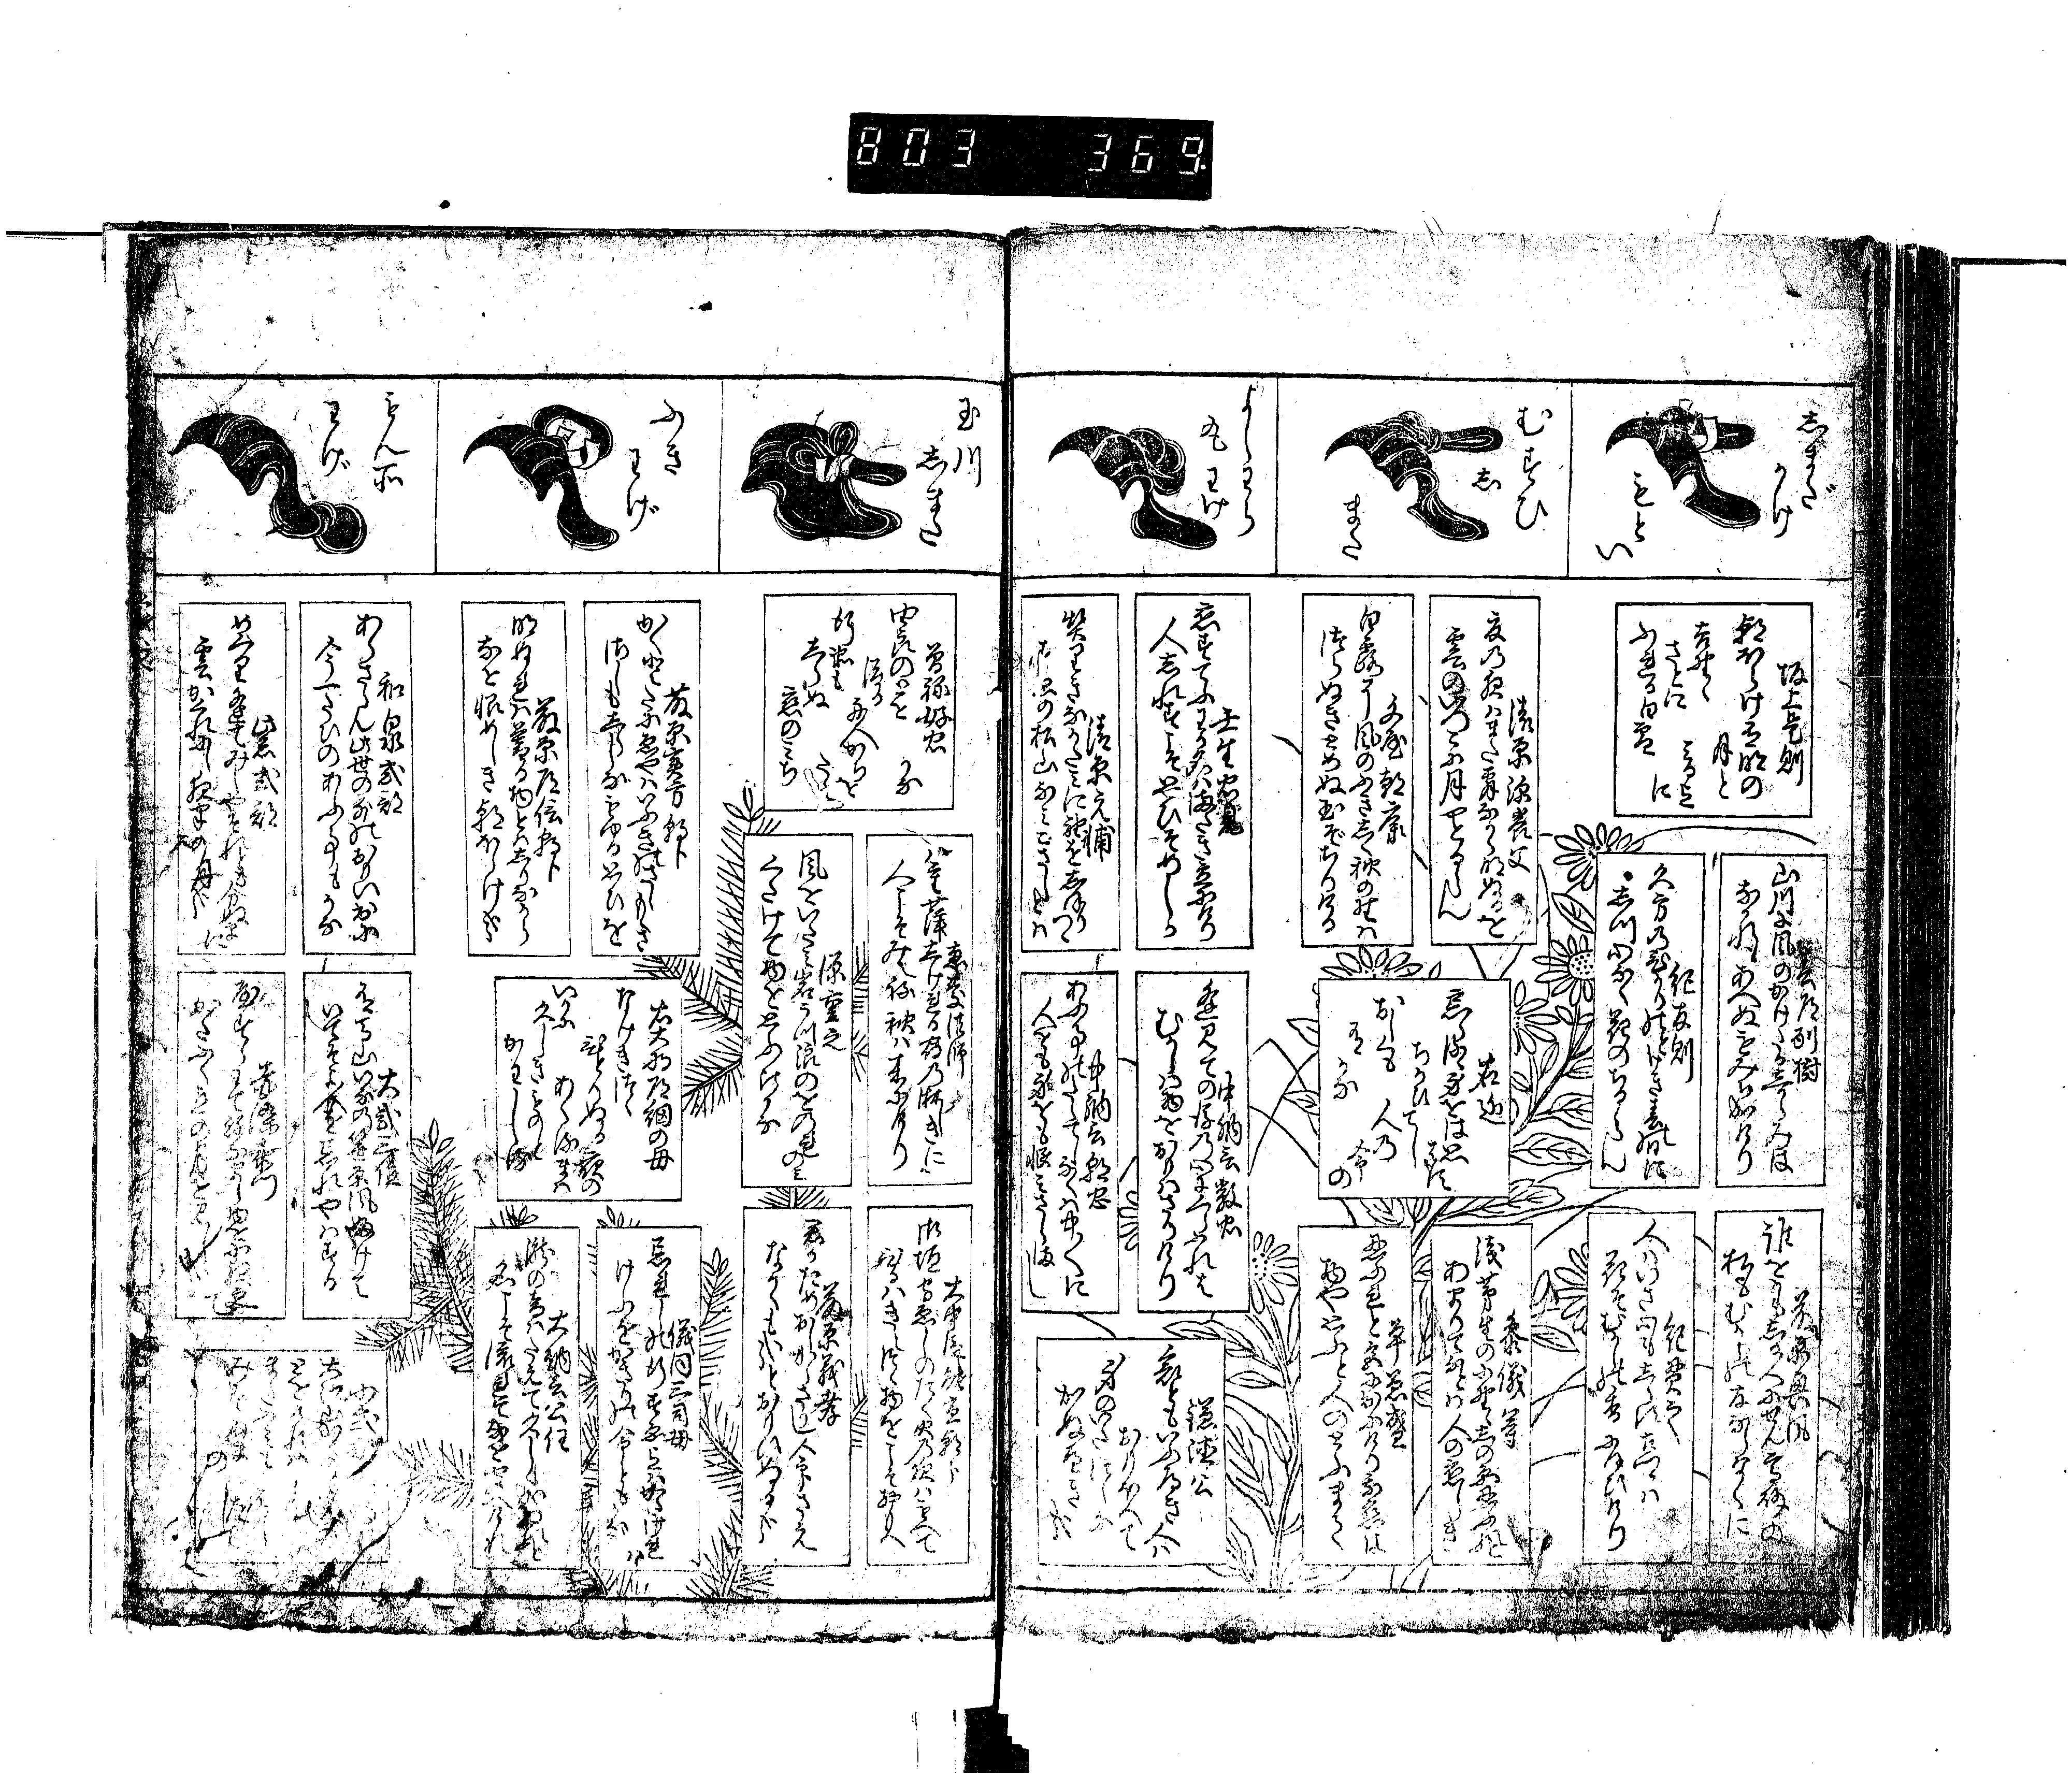 803 369
しまだ
かけ
もとい
むすひ
し
また
よしわら
丸わげ
坂上是則
朝ぼらけ有明の
月と
みるまて
よし野の
さとに
ふれる白雪
春道列樹
山川に風のかけたるしからみは
なかれもあへぬもみちなりけり
藤原興風
誰をかもしる人にせん高砂の
松もむかしの友ならなくに
紀友則
久方のひかりのとけき春の日に
しつ心なく花のちるらん
紀貫之
人はいさ心もしらすふる里は
花そむかしの香に匂ひける
清原深養父
夏の夜はまた宵なから明ぬるを
雲のいつこに月やとるらん
文屋朝康
白露に風のふきしく秋の野は
つらぬきとめぬ玉そちりける
右近
忘らるる身をは思はす
ちかひてし
人の
命の
おしくも
有かな
参議等
浅茅生の小野のしの原忍ふれと
あまりてなとか人の恋しき
平兼盛
忍ふれと色に出にけり我恋は
物や思ふと人のとふまて
壬生忠見
恋すてふわか名はまたき立にけり
人しれすこそ思ひそめしか
清原元輔
契りきなかたみに袖をしほりつつ
末の松山なみこさしとは
中納言敦忠
逢見ての後の心にくらふれは
むかしは物をおもはさりけり
中納言朝忠
あふ事のたえてしなくは中々に
人をも身をも恨さらまし
謙徳公
哀ともいふへき人は
おもほへて
身のいたつらに
なりぬへきかな
玉川
しまた
ふき
わげ
もん不
わげ
曽祢好忠
由良のとを
渡る舟人かちを
たえ
行ゑも
しらぬ
恋のみち
かな
恵慶法師
八重葎しけれる宿の淋しきに
人こそみえね秋は来にけり
大中臣能宣朝臣
御垣守衛士のたく火の夜はもえて
昼はきえつつ物をこそ思へ
源重之
風をいたみ岩うつ浪のをのれのみ
くたけて物を思ふ比かな
藤原義孝
君かためおしからさりし命さえ
なかくもかなとおもひぬるかな
藤原実方朝臣
かくとたにえやはいふきのさしも草
さしもしらしなもゆる思ひを
藤原道信朝臣
明ぬれは暮る物とはしりなから
なを恨めしき朝ほらけかな
右大将道綱の母
なけきつつ
独りぬる夜の
あくるまは
いかに
久しき物と
かはしる
儀同三司母
忘れしの行すゑまてはかたけれは
けふをかきりの命ともかな
大納言公任
滝の音はたえて久しく成ぬれと
名こそ流れて猶聞えけれ
和泉式部
あらさらん此世の外のおもひ出に
今一たひのあふ事もかな
大弐三位
有馬山いなの笹原風ふけは
いてそよ人を忘れやはする
紫式部
めくり逢てみしやそれとも分ぬまに
雲かくれにし夜半の月かな
赤染衛門
やすらはて寝なまし物を小夜更て
かたふくまての月を見しかな
小式部